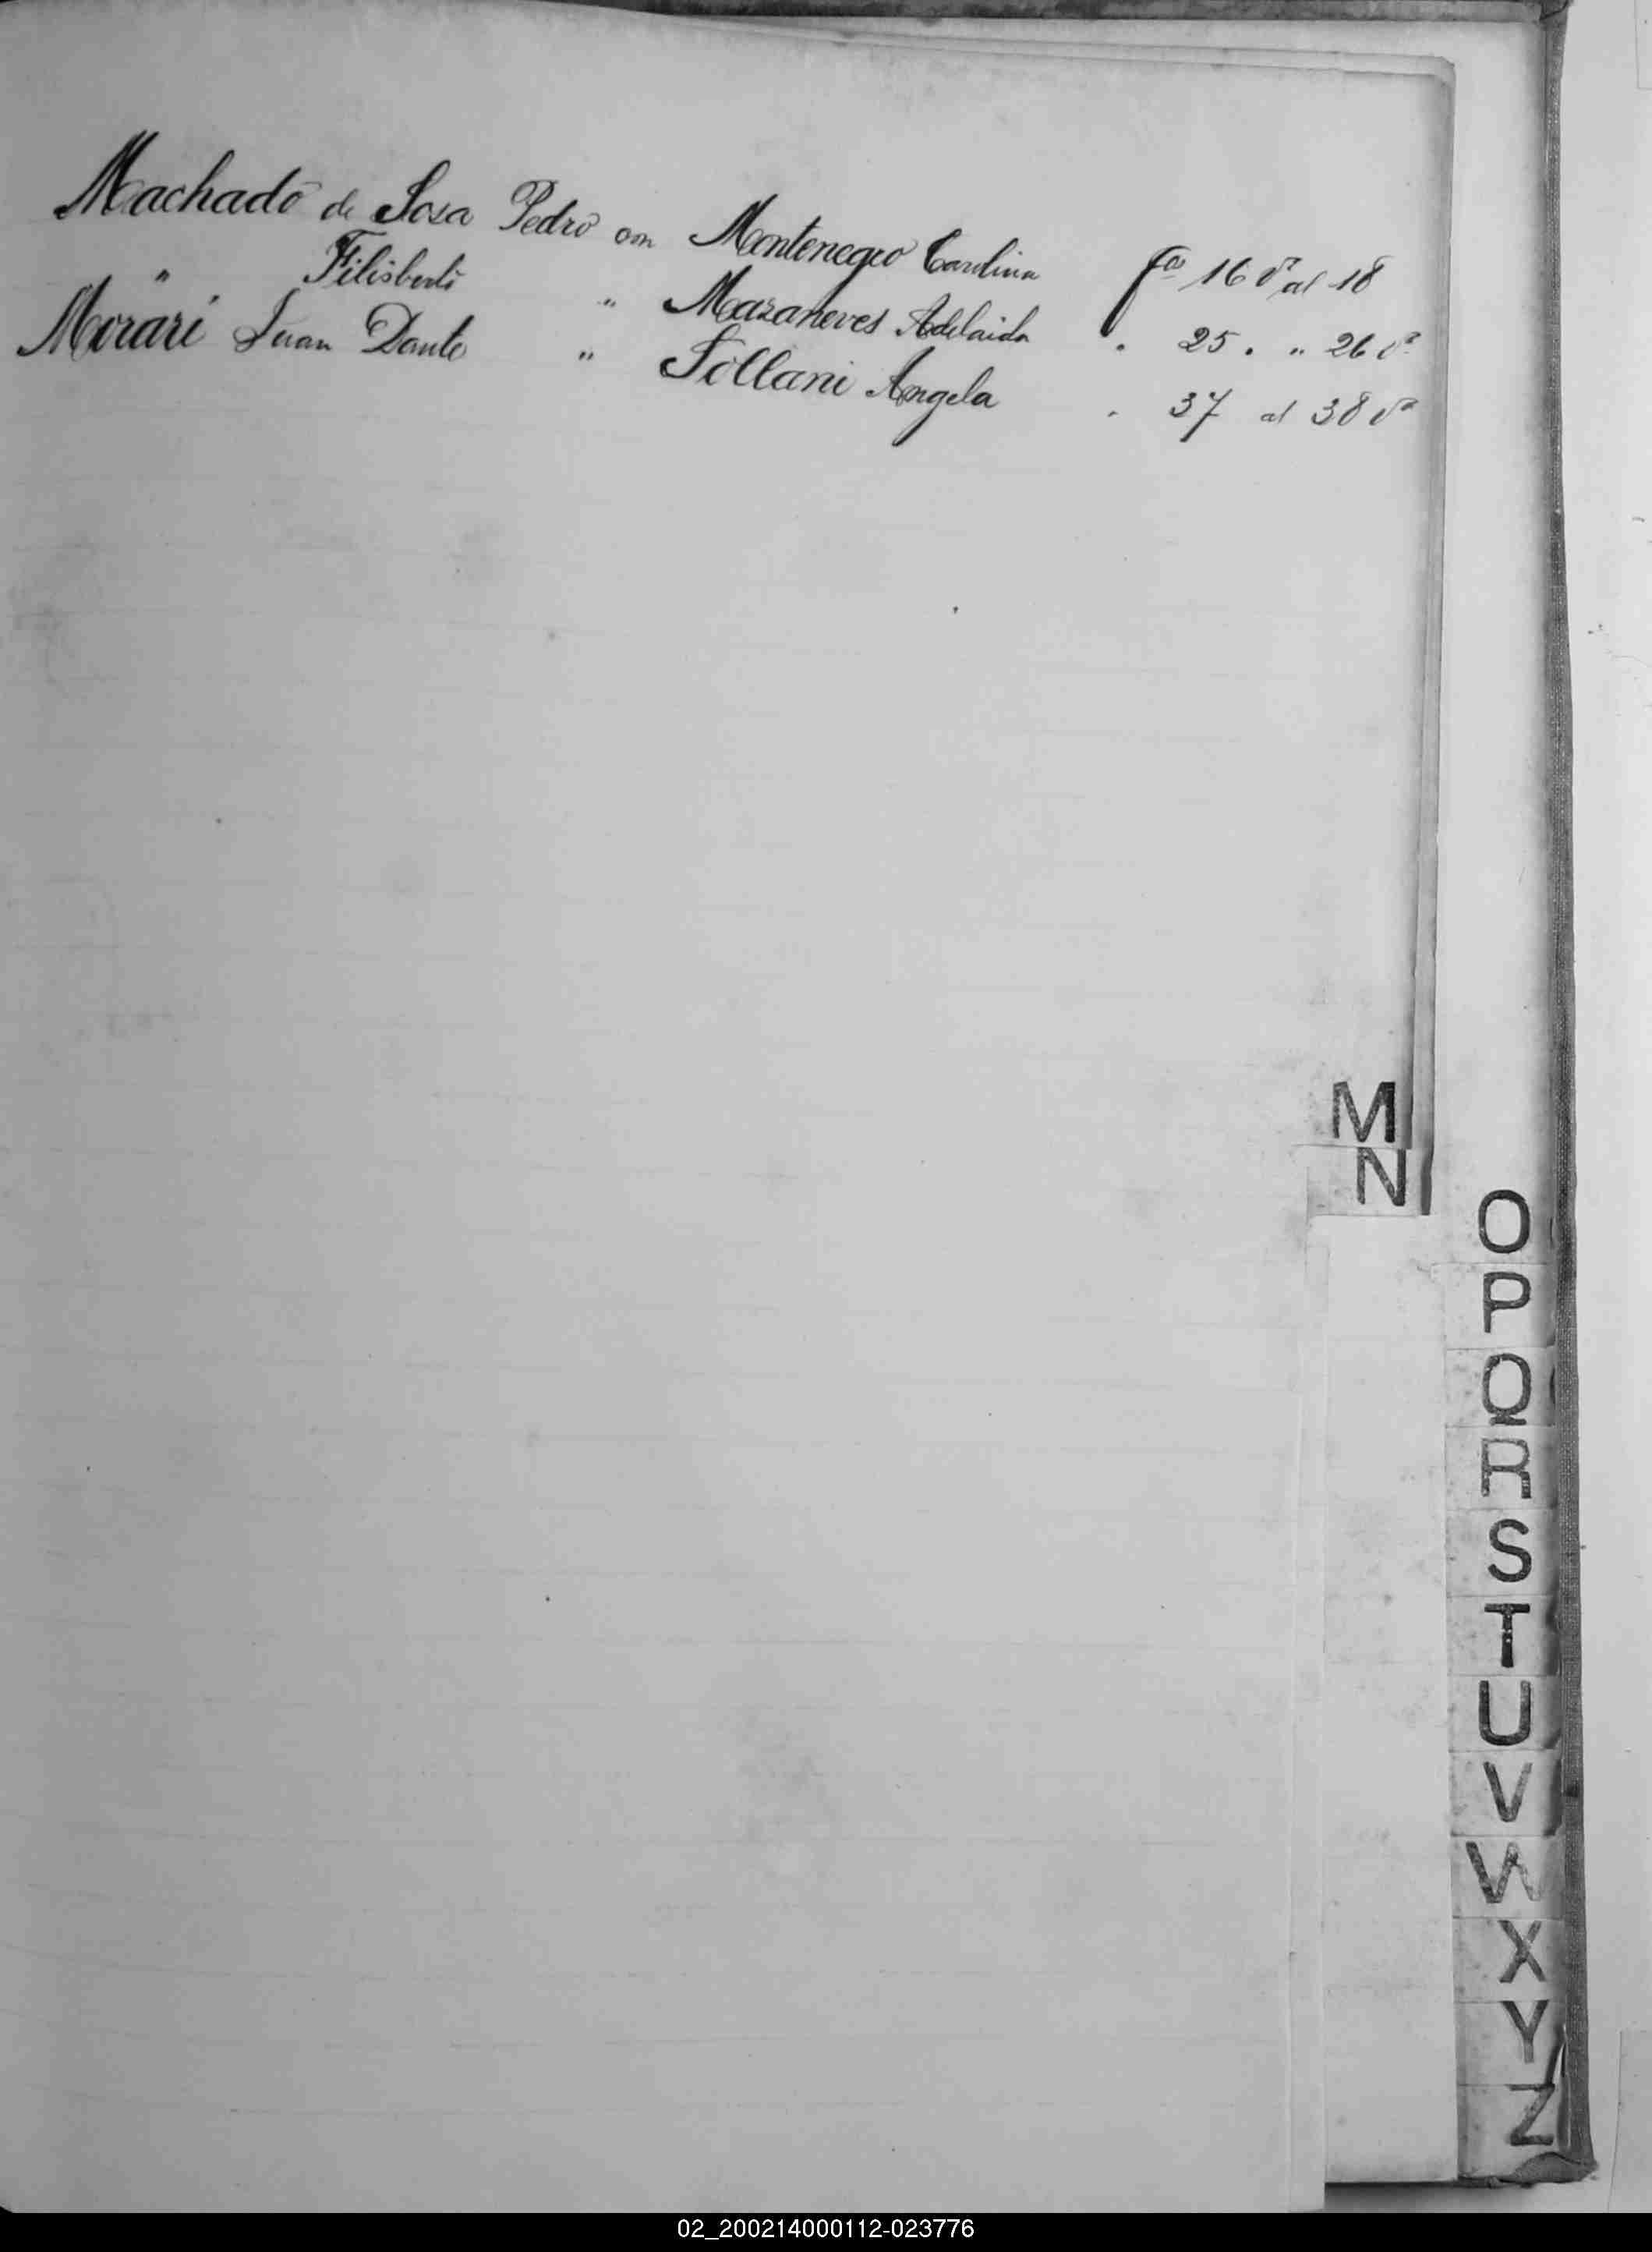 Machado de Sosa Pedro con Montenegro Carolina fos 16 vta al 18
" Filisberto " Mazaneves Adelaida . 25 . " 26 vta
Morari Juan Dante " Sollani Angela . 37 al 38 vta
M
N
O
P
Q
R
S
T
U
V
W
X
Y
Z
02_200214000112-023776